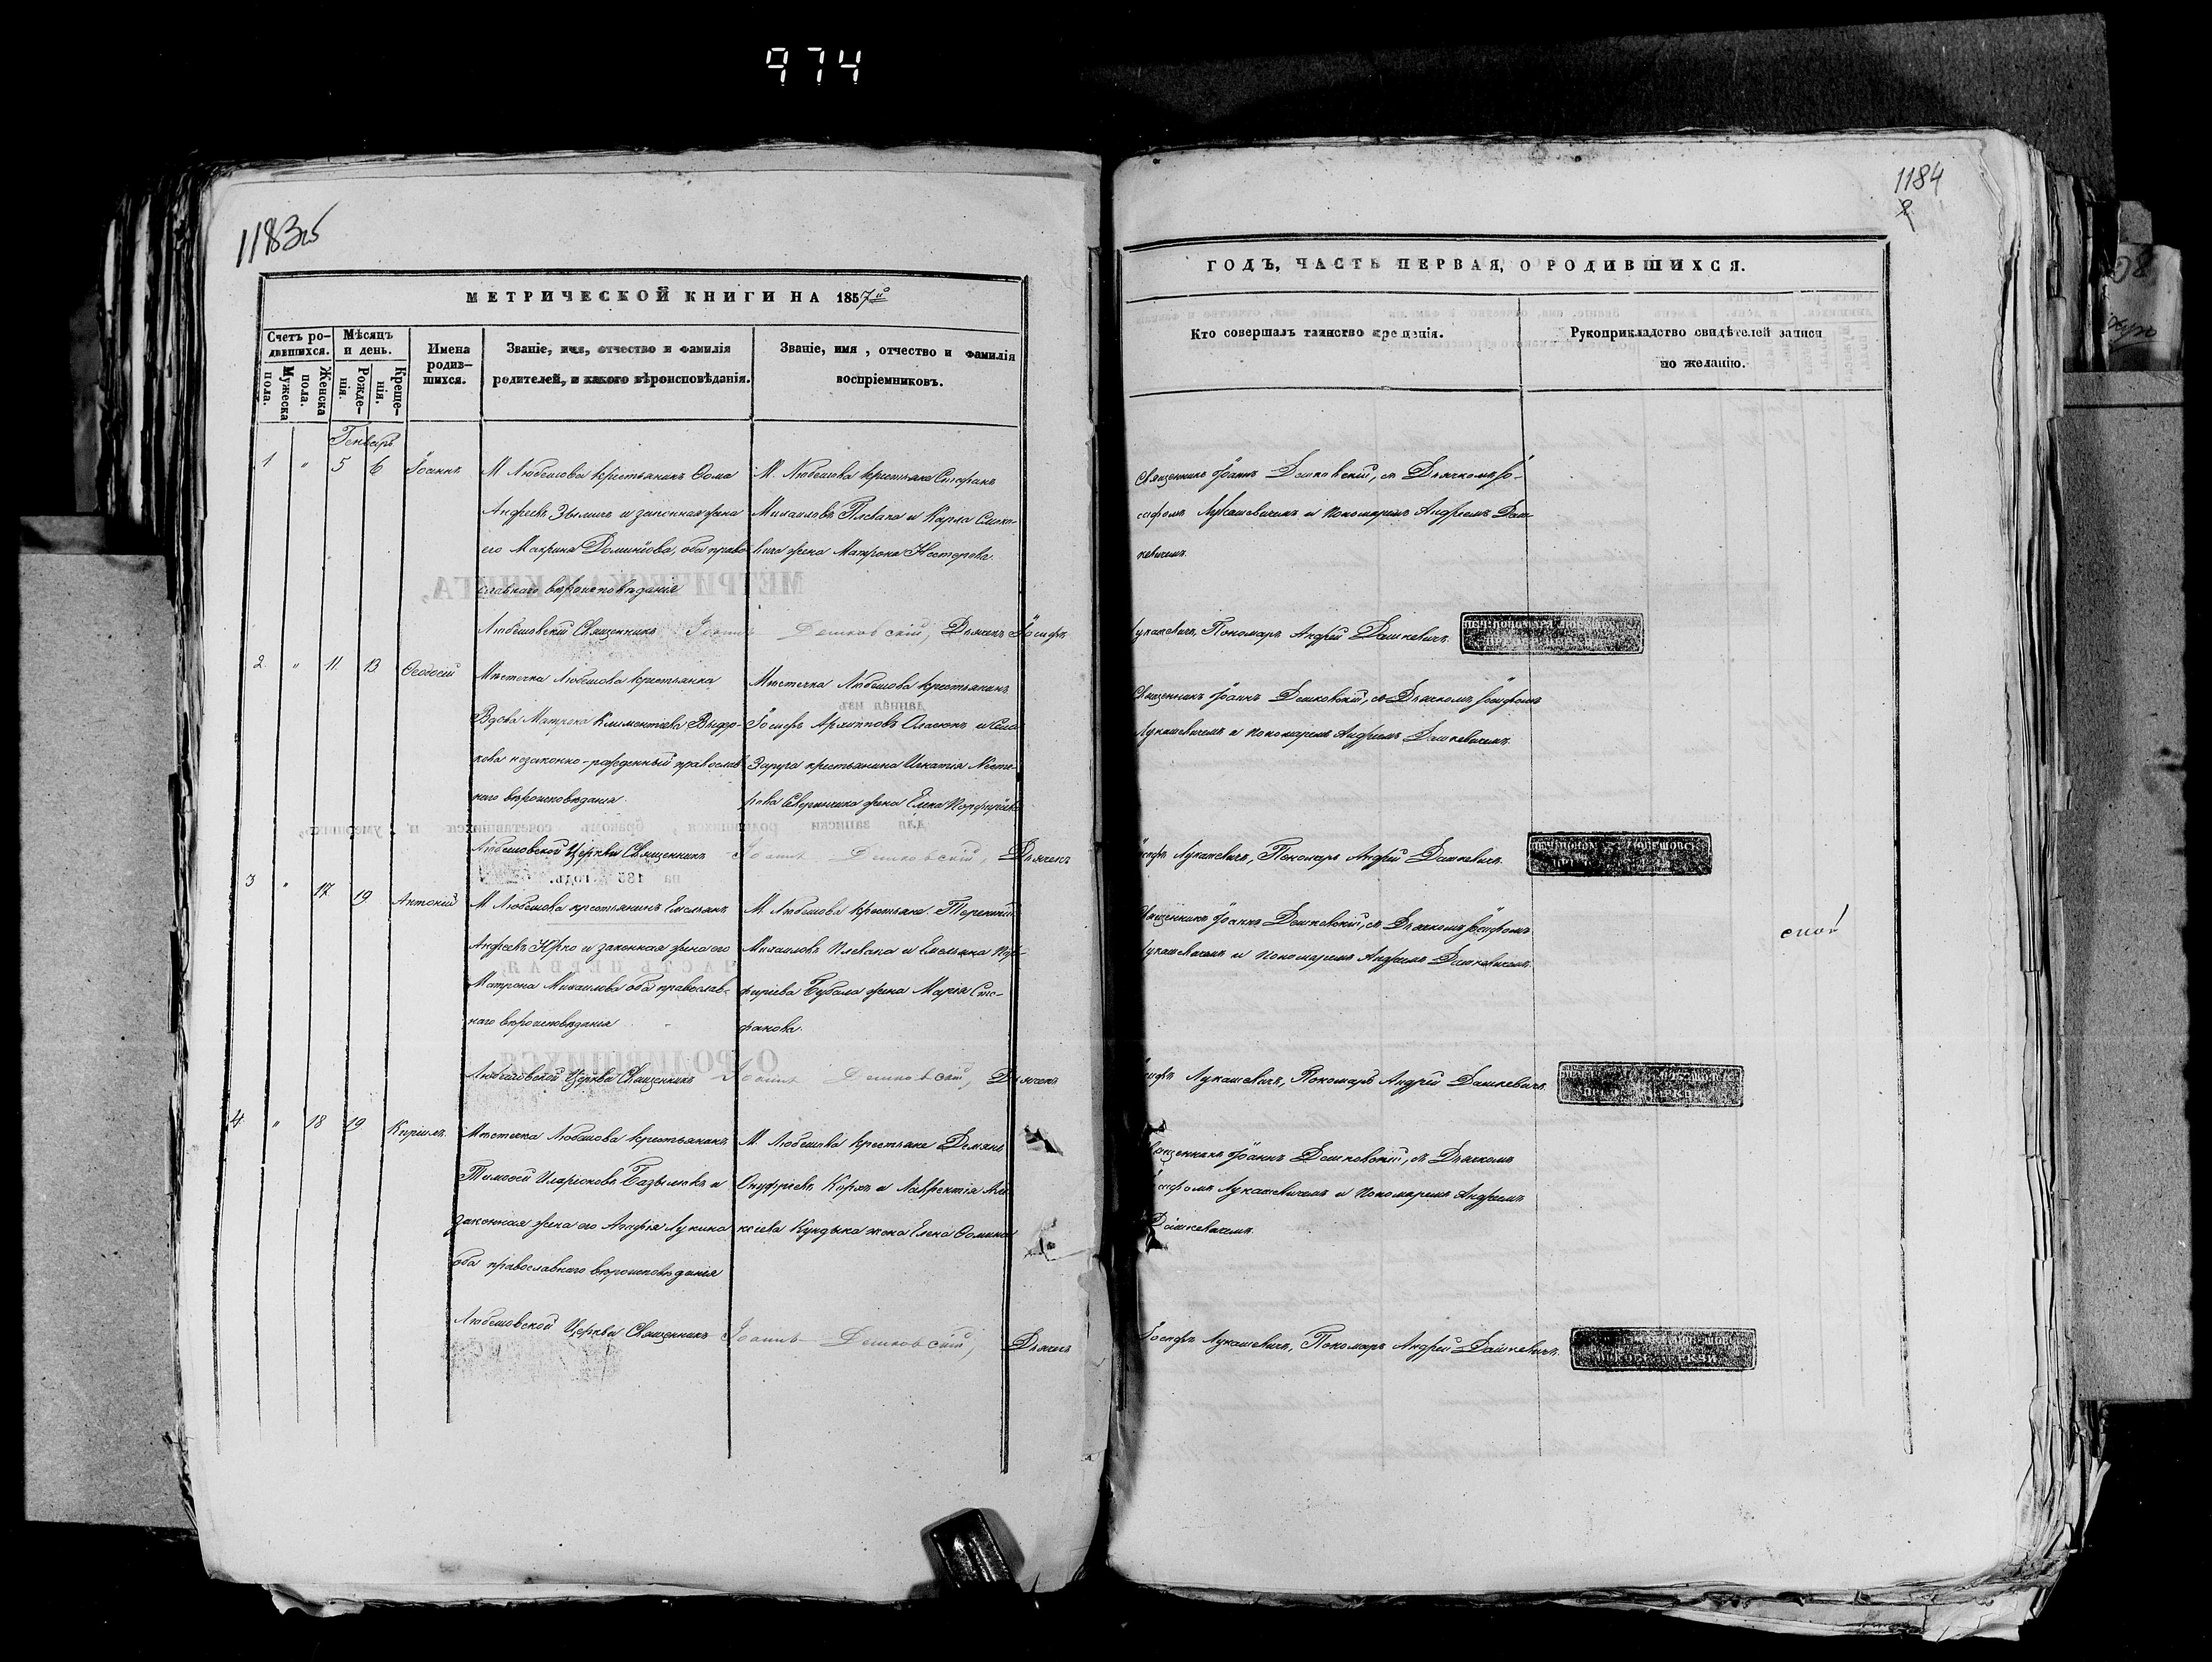 974
1183об
МЕТРИЧЕСКОЙ КНИГИ НА 1857й
Счетъ ро-
дившихся.
Мѣсяцъ
и день.
Мужеска
пола.
Женска
пола.
Рожде-
нія.
Креще-
нія.
Имена
родив-
шихся.
Званіе, имя, отчество и фамилія
родителей, и какого вѣроисповѣданія.
Званіе, имя, отчество и фамилія
воспріемниковъ.
Генварь
1 " 5 6 Іоаннъ
М. Любешова крестьянинъ Ѳома
Андреевъ и законная жена
его Макрина оба право-
славнаго вѣроисповѣданія
М. Любешова крестьяне Стефанъ
Михаиловъ Плевака и Карпа
жена Матрона Несторова
Любешовскій Священникъ Іоаннъ Дешковскій, Дьячекъ Іосифъ
2 " 11 13 Ѳеодосій
Мѣстечка Любешова крестьянка
Вдова Матрона Климентьева
незаконно-рожденный православ-
наго вѣроисповѣданія
Мѣстечка Любешова крестьянинъ
Іосифъ Архиповъ и села
Заруча крестьянина Игнатія Несте-
рова жена Елена Порфиріева
Любешовской Церкви Священникъ Іоаннъ Дешковскій, Дьячекъ
3 " 17 19 Антоній
М. Любешова крестьянинъ Емельянъ
Андреевъ Юрко и законная жена его
Матрона Михаилова оба православ-
наго вѣроисповѣданія
М. Любешова крестьяне Терентій
Михаиловъ Плевака и Емельяна Пор-
фиріева жена Марія Сте-
фанова.
Любешовской Церкви Священникъ Іоаннъ Дешковскій, Дьячекъ
4 " 18 19 Кириллъ
Мѣстечка Любешова крестьянинъ
Тимофей Иларіоновъ Базылюкъ и
законная жена его Агафія Лукина
оба православнаго вѣроисповѣданія
М. Любешова крестьяне Демянъ
Онуфріевъ Корхъ и Лаврентія Але-
ксеева Кундыка жена Елена Ѳомина
Любешовской Церкви Священникъ Іоаннъ Дешковскій, Дьячекъ
1184
ГОДЪ, ЧАСТЬ ПЕРВАЯ, О РОДИВШИХСЯ.
Кто совершалъ таинство крещенія.
Рукоприкладство свидѣтелей записи
по желанію.
Священникъ Іоаннъ Дешковскій, съ Дьячкомъ Іо-
сифомъ Лукашевичемъ и Пономаремъ Андреемъ Даш-
кевичемъ.
Лукашевичъ, Пономарь Андрей Дашкевичъ.
Священникъ Іоаннъ Дешковскій, съ Дьячкомъ Іосифомъ
Лукашевичемъ и Пономаремъ Андреемъ Дашкевичемъ.
Іосифъ Лукашевичъ, Пономарь Андрей Дашкевичъ.
Священникъ Іоаннъ Дешковскій, съ Дьячкомъ Іосифомъ
Лукашевичемъ и Пономаремъ Андреемъ Дашкевичемъ.
Іосифъ Лукашевичъ, Пономарь Андрей Дашкевичъ.
Священникъ Іоаннъ Дешковскій, съ Дьячкомъ
Іосифомъ Лукашевичемъ и Пономаремъ Андреемъ
Дашкевичемъ.
Іосифъ Лукашевичъ, Пономарь Андрей Дашкевичъ.